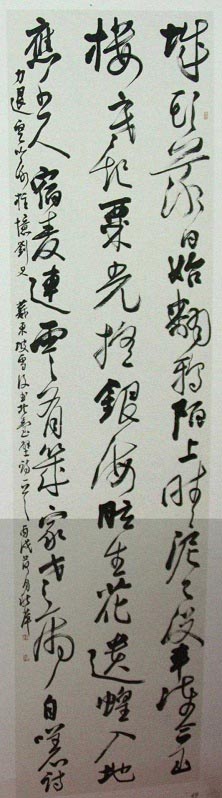 城頭初日始翻鴉陌上晴泥已沒車凍合玉
樓寒起粟光搖銀海眩生花遺蝗入地
應千尺宿麥連雲有幾家老病自嗟詩
力退空吟冰柱憶劉叉 蘇東坡雪後書北臺壁 丙戌荷月